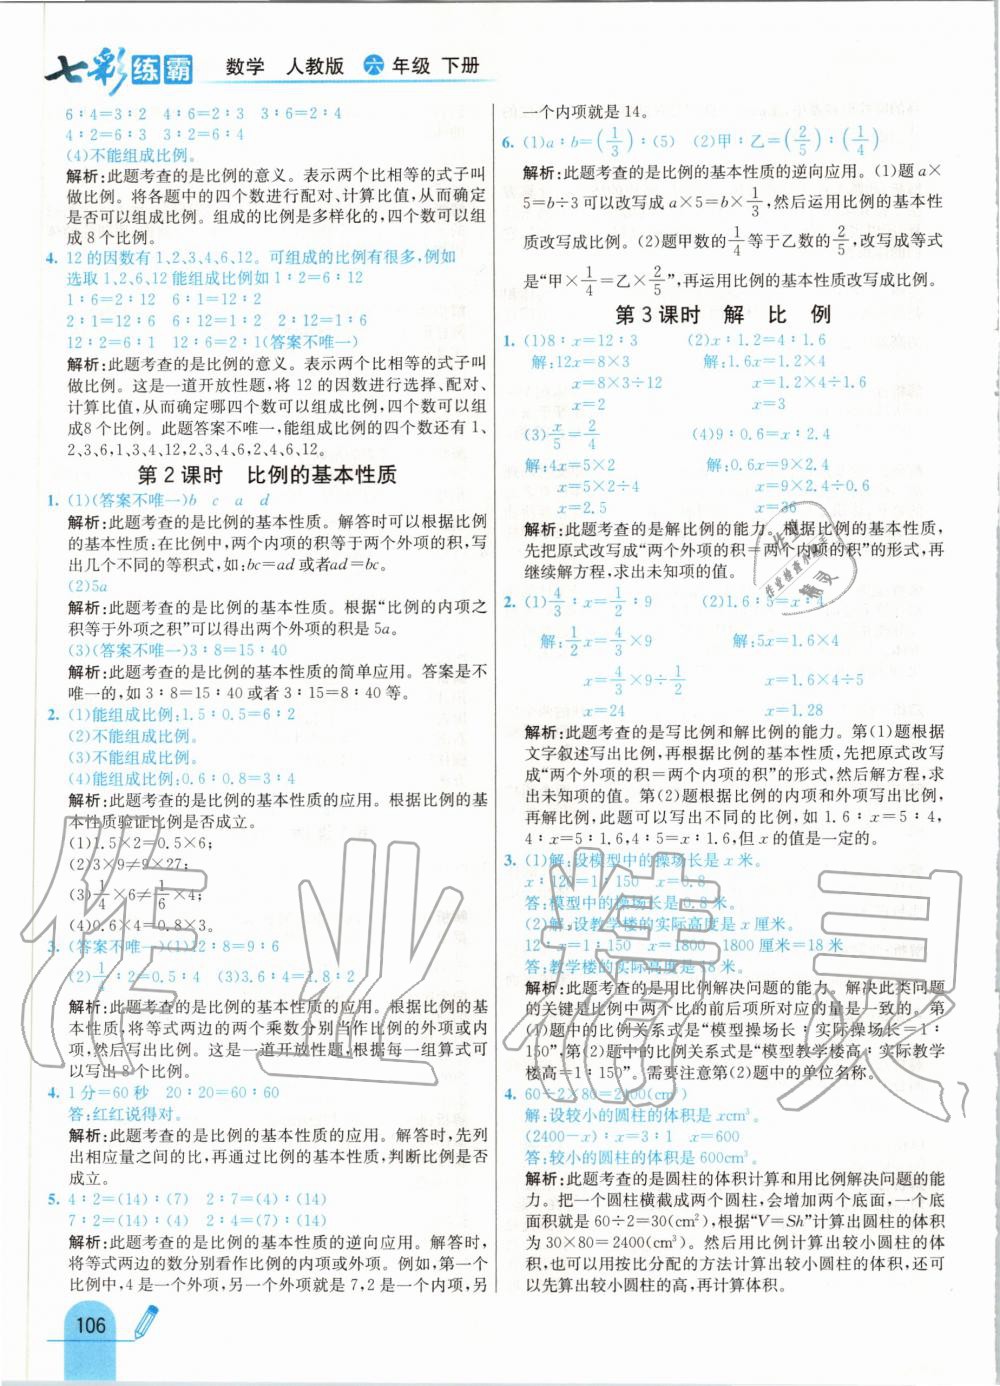 七彩练霸 数学 人教版 六年级 下册
6∶4=3∶2 4∶6=2∶3 3∶6=2∶4
4∶2=6∶3 3∶2=6∶4
(4)不能组成比例。
解析:此题考查的是比例的意义。表示两个比相等的式子叫
做比例。将各题中的四个数进行配对、计算比值,从而确定
是否可以组成比例。组成的比例是多样化的,四个数可以组
成8个比例。
4. 12的因数有1、2、3、4、6、12。可组成的比例有很多,例如
选取1、2、6、12能组成比例如1∶2=6∶12
1∶6=2∶12 6∶1=12∶2
2∶1=12∶6 6∶12=1∶2 2∶12=1∶6
12∶2=6∶1 12∶6=2∶1(答案不唯一)
解析:此题考查的是比例的意义。表示两个比相等的式子叫
做比例。这是一道开放性题,将12的因数进行选择、配对、
计算比值,从而确定哪四个数可以组成比例,四个数可以组
成8个比例。此题答案不唯一,能组成比例的四个数还有1、
2、3、6,1、3、4、12,2、3、4、6,2、4、6、12。
第2课时 比例的基本性质
1. (1)(答案不唯一)b c a d
解析:此题考查的是比例的基本性质。解答时可以根据比例
的基本性质:在比例中,两个内项的积等于两个外项的积,写
出几个不同的等积式,如:bc=ad或者ad=bc。
(2)5a
解析:此题考查的是比例的基本性质。根据“比例的内项之
积等于外项之积”可以得出两个外项的积是5a。
(3)(答案不唯一)3∶8=15∶40
解析:此题考查的是比例的基本性质的简单应用。答案是不
唯一的,如3∶8=15∶40或者3∶15=8∶40等。
2. (1)能组成比例;1.5∶0.5=6∶2
(2)不能组成比例。
(3)不能组成比例。
(4)能组成比例;0.6∶0.8=3∶4
解析:此题考查的是比例的基本性质的应用。根据比例的基
本性质验证比例是否成立。
(1)1.5×2=0.5×6;
(2)3×9≠9×27;
(3)1/4×6≠1/6×4;
(4)0.6×4=0.8×3。
3. (答案不唯一)(1)12∶8=9∶6
(2)1/4∶2= (3)3.6∶4=1.8∶2
解析:此题考查的是比例的基本性质的应用。根据比例的基
本性质,将等式两边的两个乘数分别当作比例的外项或内
项,然后写出比例。这是一道开放性题,根据每一组算式可
以写出8个比例。
4. 1分=60秒 20∶20=60∶60
答:红红说得对。
解析:此题考查的是比例的基本性质的应用。解答时,先列
出相应量之间的比,再通过比例的基本性质,判断比例是否
成立。
5. 4∶2=(14)∶(7) 2∶4=(7)∶(14)
7∶2=(14)∶(4) 2∶4=(7)∶(14)
解析:此题考查的是比例的基本性质的逆向应用。解答时,
将等式两边的数分别看作比例的内项或外项。例如,第一个
比例中,4是一个外项,另一个外项就是7,2是一个内项,另
一个内项就是14。
6. (1)a∶b=(1/3)∶(5) (2)甲∶乙=(2/5)∶(1/4)
解析:此题考查的是比例的基本性质的逆向应用。(1)题a×
5=b÷3可以改写成a×5=b×1/3,然后运用比例的基本性
质改写成比例。(2)题甲数的1/4等于乙数的2/5,改写成等式
是“甲×1/4=乙×2/5”,再运用比例的基本性质改写成比例。
第3课时 解 比 例
1. (1)8∶x=12∶3 (2)x∶1.2=4∶1.6
解:12x=8×3 解:1.6x=1.2×4
x=8×3÷12 x=1.2×4÷1.6
x=2 x=3
(3)x/5=2/4 (4)9∶0.6=x∶2.4
解:4x=5×2 解:0.6x=9×2.4
x=5×2÷4 x=9×2.4÷0.6
x=2.5 x=36
解析:此题考查的是解比例的能力。根据比例的基本性质,
先把原式改写成“两个外项的积=两个内项的积”的形式,再
继续解方程,求出未知项的值。
2. (1)4/3∶x=1/2∶9 (2)1.6∶5=x∶4
解:1/2x=4/3×9 解:5x=1.6×4
x=4/3×9÷1/2 x=1.6×4÷5
x=24 x=1.28
解析:此题考查的是写比例和解比例的能力。第(1)题根据
文字叙述写出比例,再根据比例的基本性质,先把原式改写
成“两个外项的积=两个内项的积”的形式,然后解方程,求
出未知项的值。第(2)题根据比例的内项和外项写出比例,
再解比例,此题可以写出不同的比例,如1.6∶x=5∶4,
4∶x=5∶1.6,4∶5=x∶1.6,但x的值是一定的。
3. (1)解:设模型中的操场长是x米。
x∶120=1∶150 x=0.8
答:模型中的操场长是0.8米。
(2)解:设教学楼的实际高度是x厘米。
12∶x=1∶150 x=1800 1800厘米=18米
答:教学楼的实际高度是18米。
解析:此题考查的是用比例解决问题的能力。解决此类问题
的关键是比例中两个比的前后项所对应的量是一致的。第
(1)题中的比例关系式是“模型操场长∶实际操场长=1∶
150”,第(2)题中的比例关系式是“模型教学楼高∶实际教学
楼高=1∶150”。需要注意第(2)题中的单位名称。
4. 60÷2×80=2400(cm³)
解:设较小的圆柱的体积是xcm³。
(2400-x)∶x=3∶1 x=600
答:较小的圆柱的体积是600cm³。
解析:此题考查的是圆柱的体积计算和用比例解决问题的能
力。把一个圆柱横截成两个圆柱,会增加两个底面,一个底
面积就是60÷2=30(cm²),根据“V=Sh”计算出圆柱的体积
为30×80=2400(cm³)。然后用比例计算出较小圆柱的体
积,也可以用按比分配的方法计算出较小圆柱的体积,还可
以先算出较小圆柱的高,再计算体积。
作业精灵
106